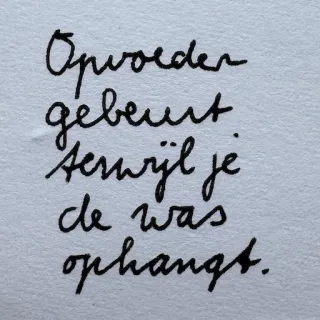 Opvoeden
gebeurt
terwijl je
de was
ophangt.